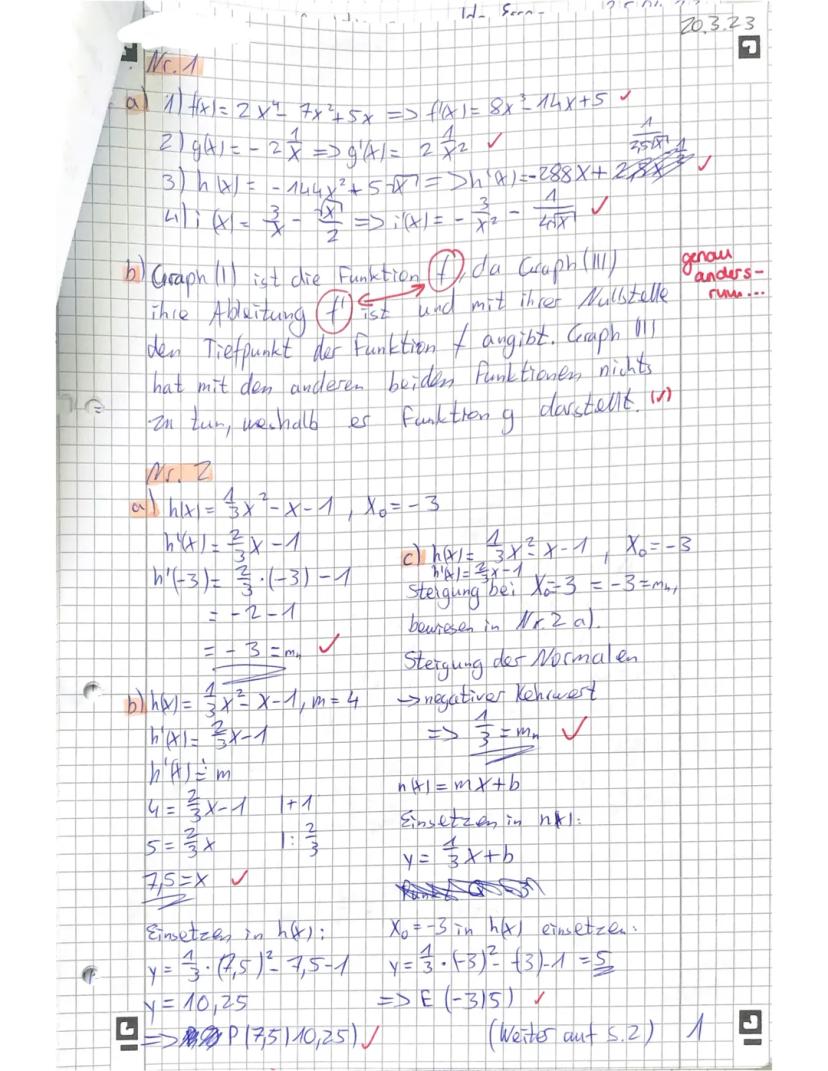 20.3.23
Nr. 1
a) 1) f(x) = 2x⁴ - 7x² + 5x => f'(x) = 8x³ - 14x + 5 ✓
2) g(x) = - 2 1/x => g'(x) = 2 1/x² ✓
3) h(x) = - 144x² + 5·√x => h'(x) = -288x + 1/(2,5√x) ✓
4) i(x) = 3/x - √x/2 => i'(x) = - 3/x² - 1/(4√x) ✓
b) Graph (I) ist die Funktion f, da Graph (III)
ihre Ableitung f' ist und mit ihrer Nullstelle
den Tiefpunkt der Funktion f angibt. Graph (II)
hat mit den anderen beiden Funktionen nichts
zu tun, weshalb er Funktion g darstellt. (✓)
genau
anders-
rum...
Nr. 2
a) h(x) = 1/3 x² - x - 1 , x₀ = - 3
h'(x) = 2/3 x - 1
h'(-3) = 2/3 · (-3) - 1
= - 2 - 1
= - 3 = mₕ ✓
b) h(x) = 1/3 x² - x - 1, m = 4
h'(x) = 2/3 x - 1
h'(x) = m
4 = 2/3 x - 1 | + 1
5 = 2/3 x | : 2/3
7,5 = x ✓
Einsetzen in h(x):
y = 1/3 · (7,5)² - 7,5 - 1
y = 10,25
=> P (7,5|10,25) ✓
c) h(x) = 1/3 x² - x - 1 , x₀ = - 3
h'(x) = 2/3 x - 1
Steigung bei x₀ = -3 = -3 = mₕ,
bewiesen in Nr. 2 a).
Steigung der Normalen
→ negativer Kehrwert
=> 1/3 = mₙ ✓
n(x) = mx + b
Einsetzen in n(x):
y = 1/3 x + b
x₀ = -3 in h(x) einsetzen:
y = 1/3 · (-3)² - (-3) - 1 = 5
=> E (-3|5) ✓
(Weiter auf S. 2) 1